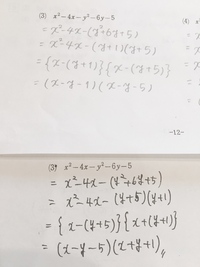 (3) x²-4x-y²-6y-5
(4) x
= x²-4x-(y²+6y+5)
= x²-4x-(y+1)(y+5)
= {x-(y+1)}{x-(y+5)}
= (x-y-1)(x-y-5)
-12-
(3) x²-4x-y²-6y-5
= x²-4x-(y²+6y+5)
= x²-4x-(y+5)(y+1)
= {x-(y+5)}{x+(y+1)}
= (x-y-5)(x+y+1)